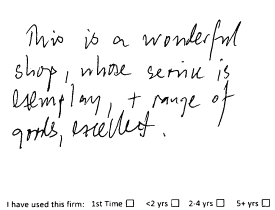 This is a wonderful
shop, whose service is
exemplary, + range of
goods, excellent.
I have used this firm: 1st Time ☐ <2 yrs ☐ 2-4 yrs ☐ 5+ yrs ☐